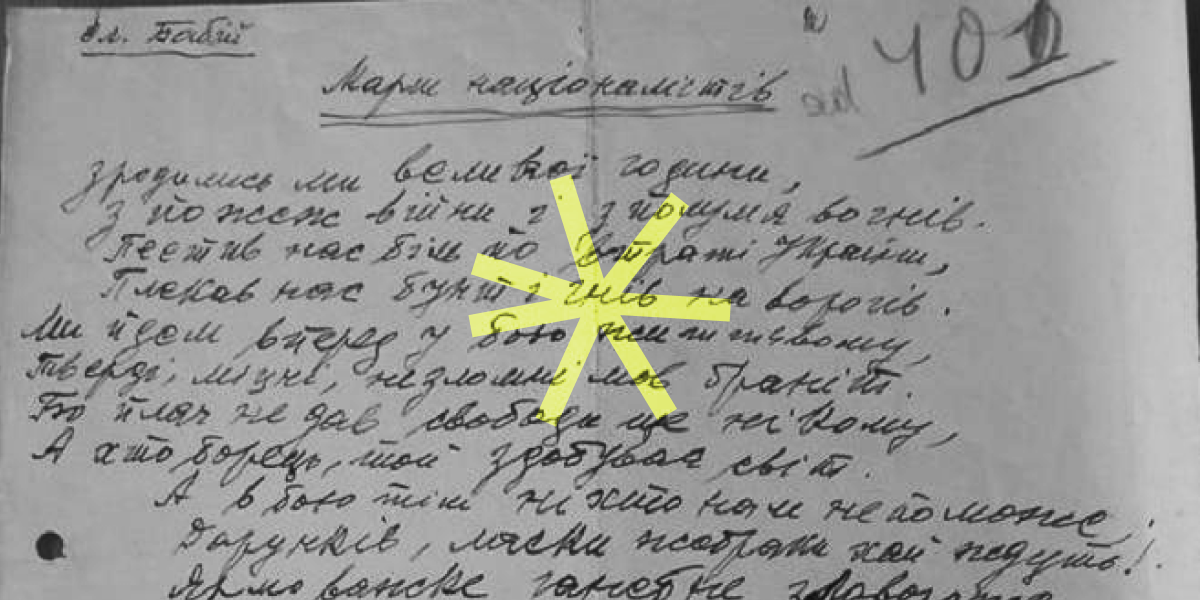 Ол. Бабій
401
Марш націоналістів
Зродились ми великої години,
З пожеж війни і з полумя вогнів.
Пестив нас біль по втраті України,
Плекав нас бунт і гнів на ворогів.
Ми йдем вперед у бою життєвому,
Тверді, міцні, незломні мов ґраніт.
Бо плач не дав свободи ще нікому,
А хто борець, той здобував світ.
А в бою тім ніхто нам не поможе,
Дарунків, ласки жебраки хай ждуть!
Ярмо ганебне